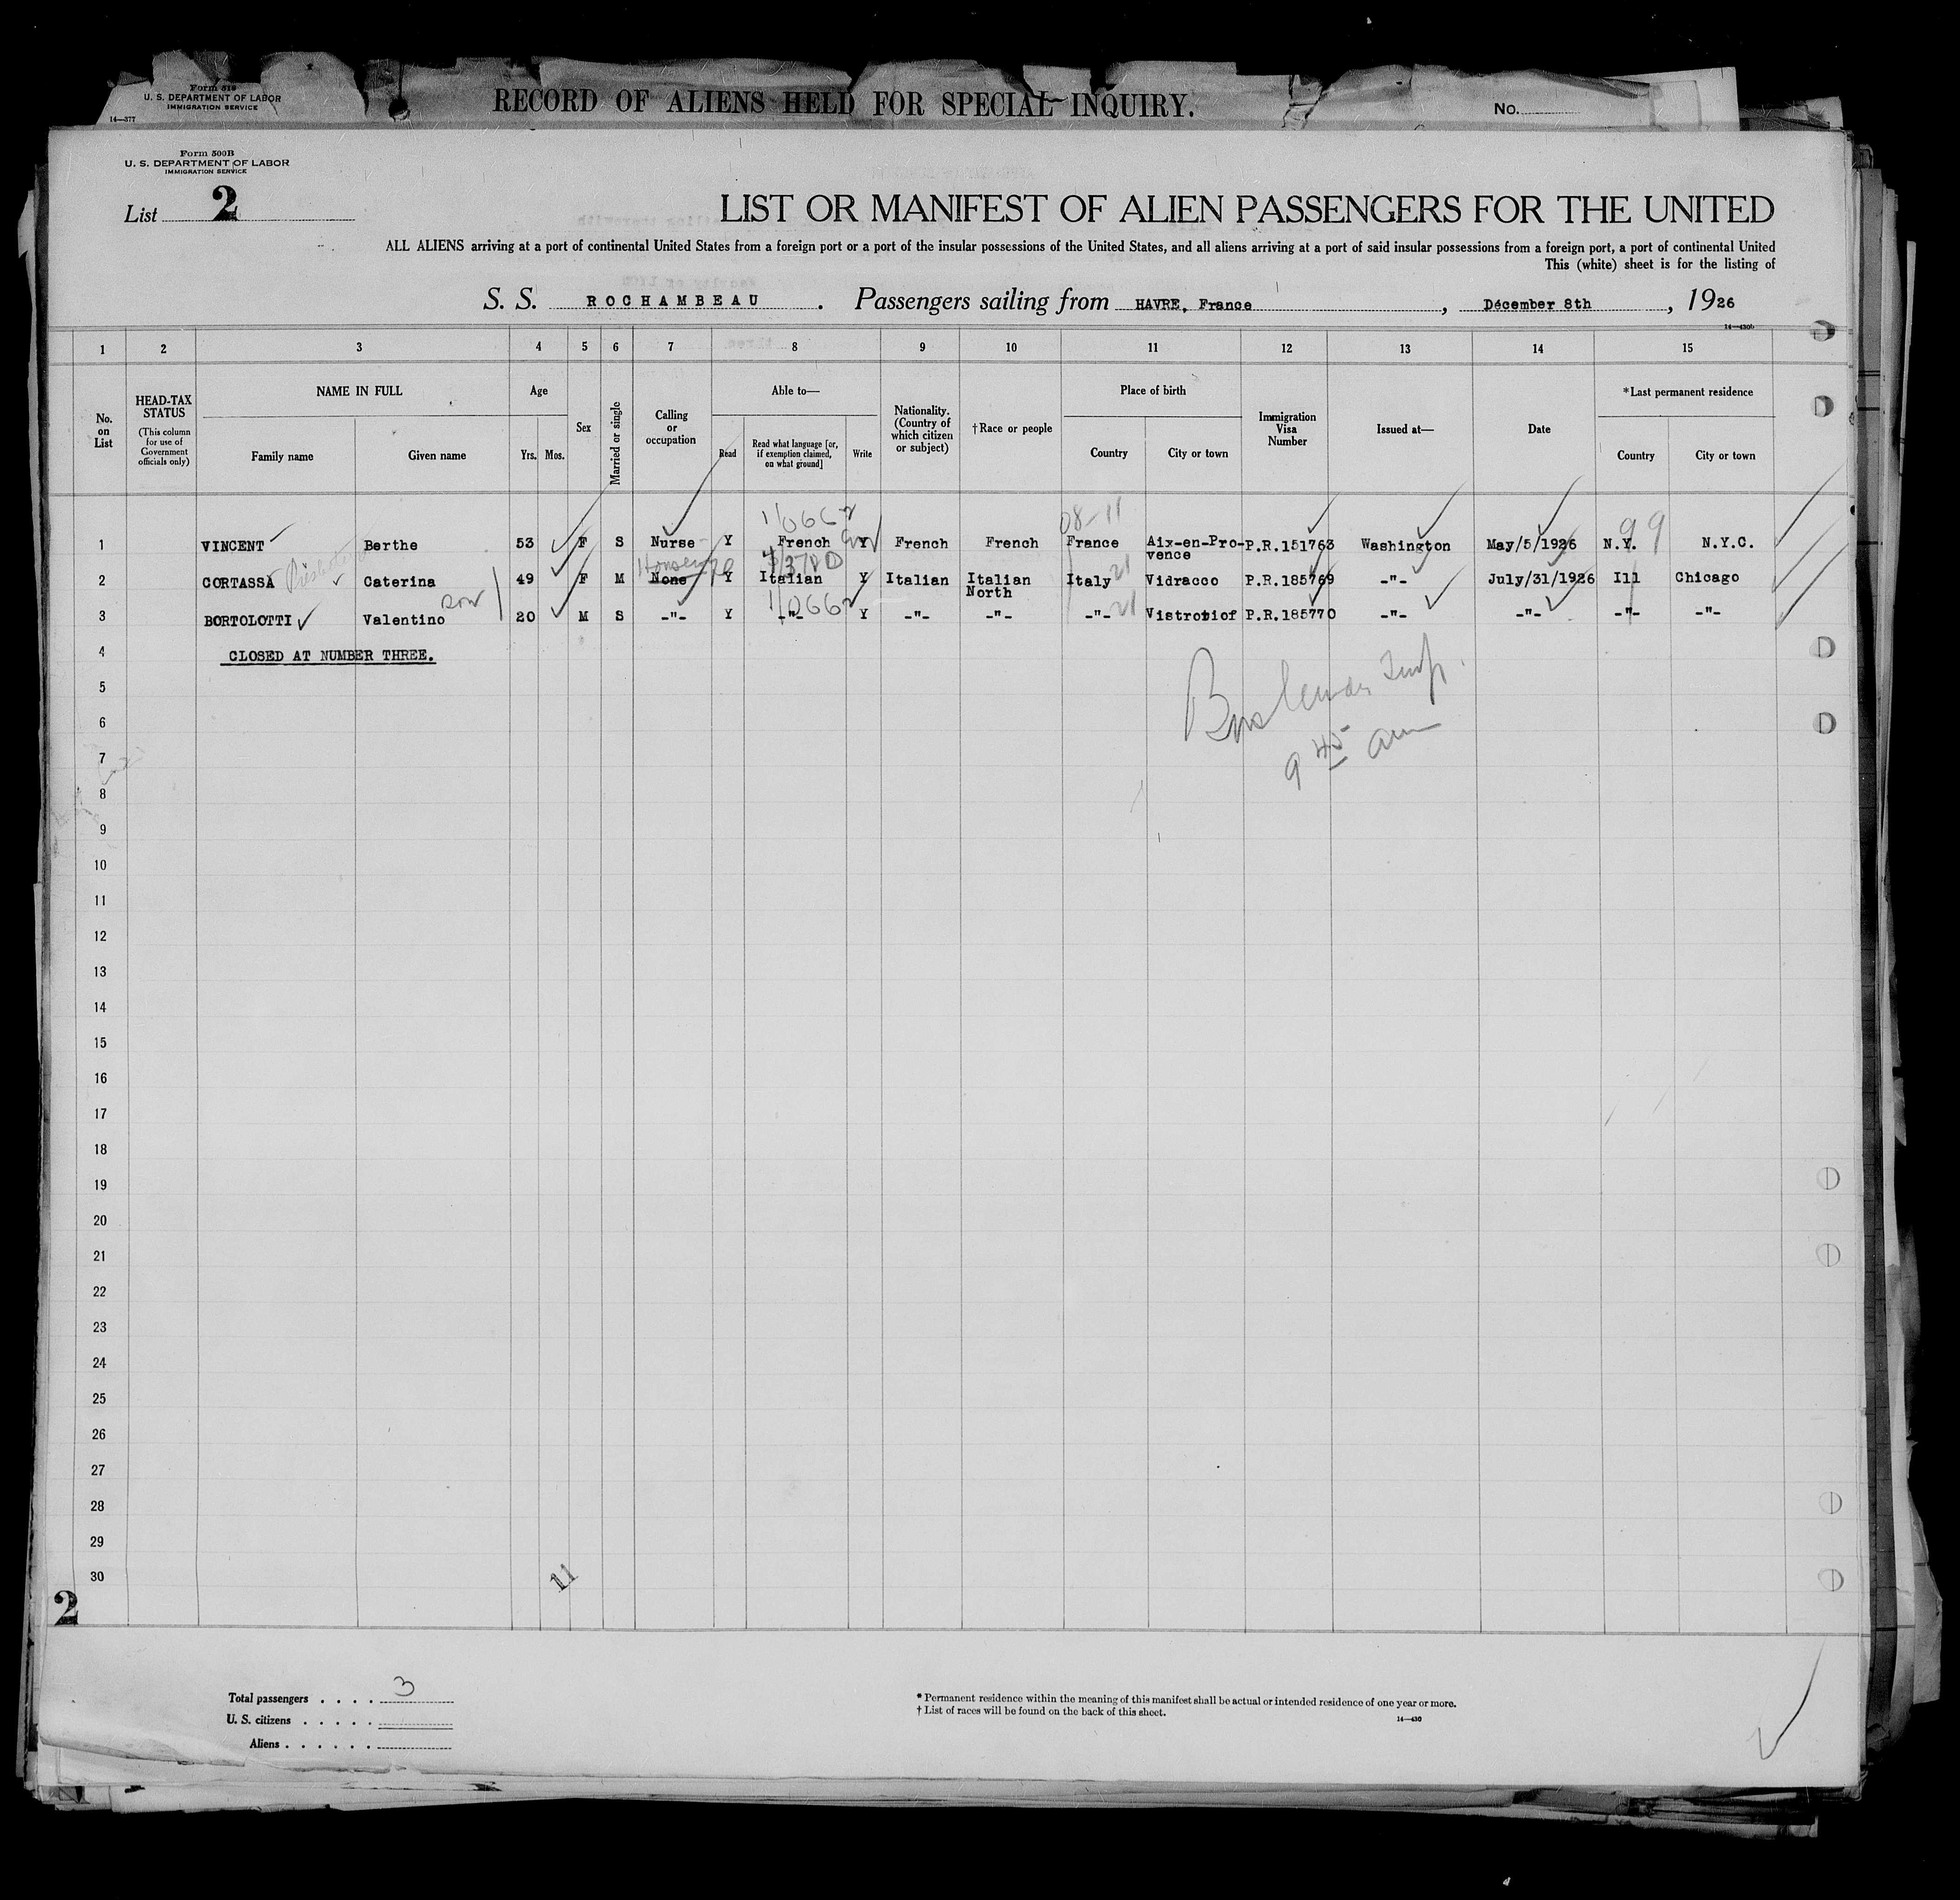 Form 519
U. S. DEPARTMENT OF LABOR
IMMIGRATION SERVICE
14—377
RECORD OF ALIENS HELD FOR SPECIAL INQUIRY.
No.
Form 500B
U. S. DEPARTMENT OF LABOR
IMMIGRATION SERVICE
List 2
LIST OR MANIFEST OF ALIEN PASSENGERS FOR THE UNITED
ALL ALIENS arriving at a port of continental United States from a foreign port or a port of the insular possessions of the United States, and all aliens arriving at a port of said insular possessions from a foreign port, a port of continental United
This (white) sheet is for the listing of
S. S. ROCHAMBEAU. Passengers sailing from HAVRE, France, Décember 8th, 1926
14—430b
1 2 3 4 5 6 7 8 9 10 11 12 13 14 15
No. on List
HEAD-TAX STATUS (This column for use of Government officials only)
NAME IN FULL
Family name
Given name
Age
Yrs. Mos.
Sex
Married or single
Calling or occupation
Able to—
Read
Read what language [or, if exemption claimed, on what ground]
Write
Nationality. (Country of which citizen or subject)
†Race or people
Place of birth
Country
City or town
Immigration Visa Number
Issued at—
Date
*Last permanent residence
Country
City or town
1/0662 08-11 99
1 VINCENT Berthe 53 F S Nurse Y French Y French French France Aix-en-Provence P.R.151763 Washington May/5/1926 N.Y. N.Y.C.
4/378D
2 CORTASSA Caterina 49 F M None Y Italian Y Italian Italian North Italy 21 Vidracco P.R.185769 -"- July/31/1926 Ill Chicago
son 1/0662
3 BORTOLOTTI Valentino 20 M S -"- Y -"- Y -"- -"- -"- 21 P.R.185770 -"- -"- -"- -"-
4 CLOSED AT NUMBER THREE.
5
6
9 45 am
7
8
9
10
11
12
13
14
15
16
17
18
19
20
21
22
23
24
25
26
27
28
29
30
11
2
Total passengers . . . . 3
U. S. citizens . . . . .
Aliens . . . . . .
* Permanent residence within the meaning of this manifest shall be actual or intended residence of one year or more.
† List of races will be found on the back of this sheet.
14—430